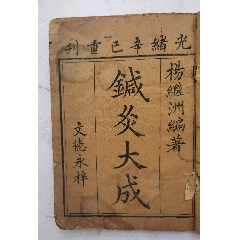 光緒辛巳重刊
楊繼洲編著
鍼灸大成
文德永梓